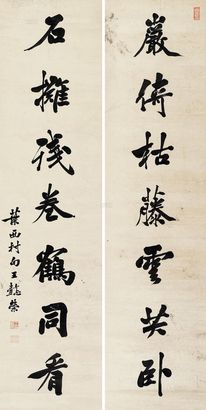 巖倚枯藤雲共卧
石擁殘卷鶴同看
葉西村句王懿榮